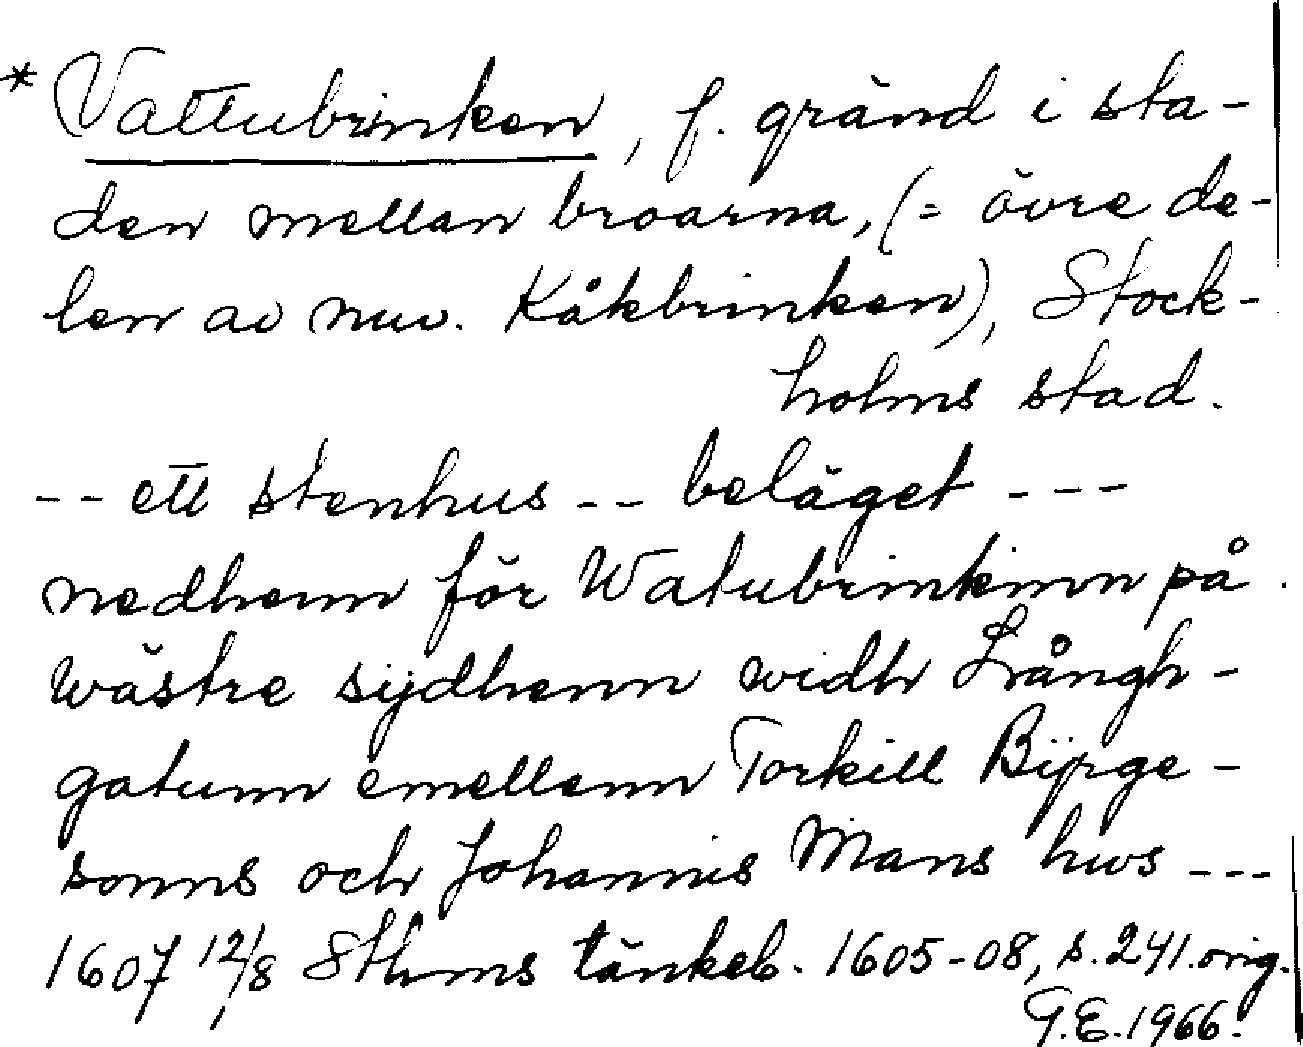 * Vattubrinken, f. gränd i sta-
den mellan broarna, (= övre de-
len av nuv. Kåkbrinken), Stock-
holms stad.
-- ett stenhus -- beläget ---
nedhenn för Watubrinkinn på
wästre sijdhenn widh Långh-
gatunn emellenn Torkill Bÿrge-
sonns och Johannis Mans hws ---
1607 12/8 Sthms tänkeb. 1605-08, s. 241. orig.
G.E. 1966.